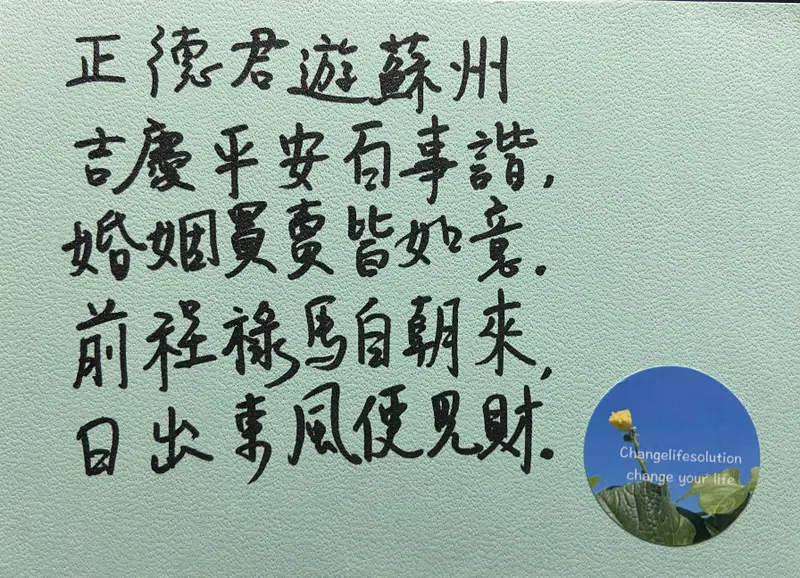 正德君遊蘇州
吉慶平安百事諧,
婚姻買賣皆如意.
前程祿馬自朝來,
日出東風便見財.
Changelifesolution
change your life